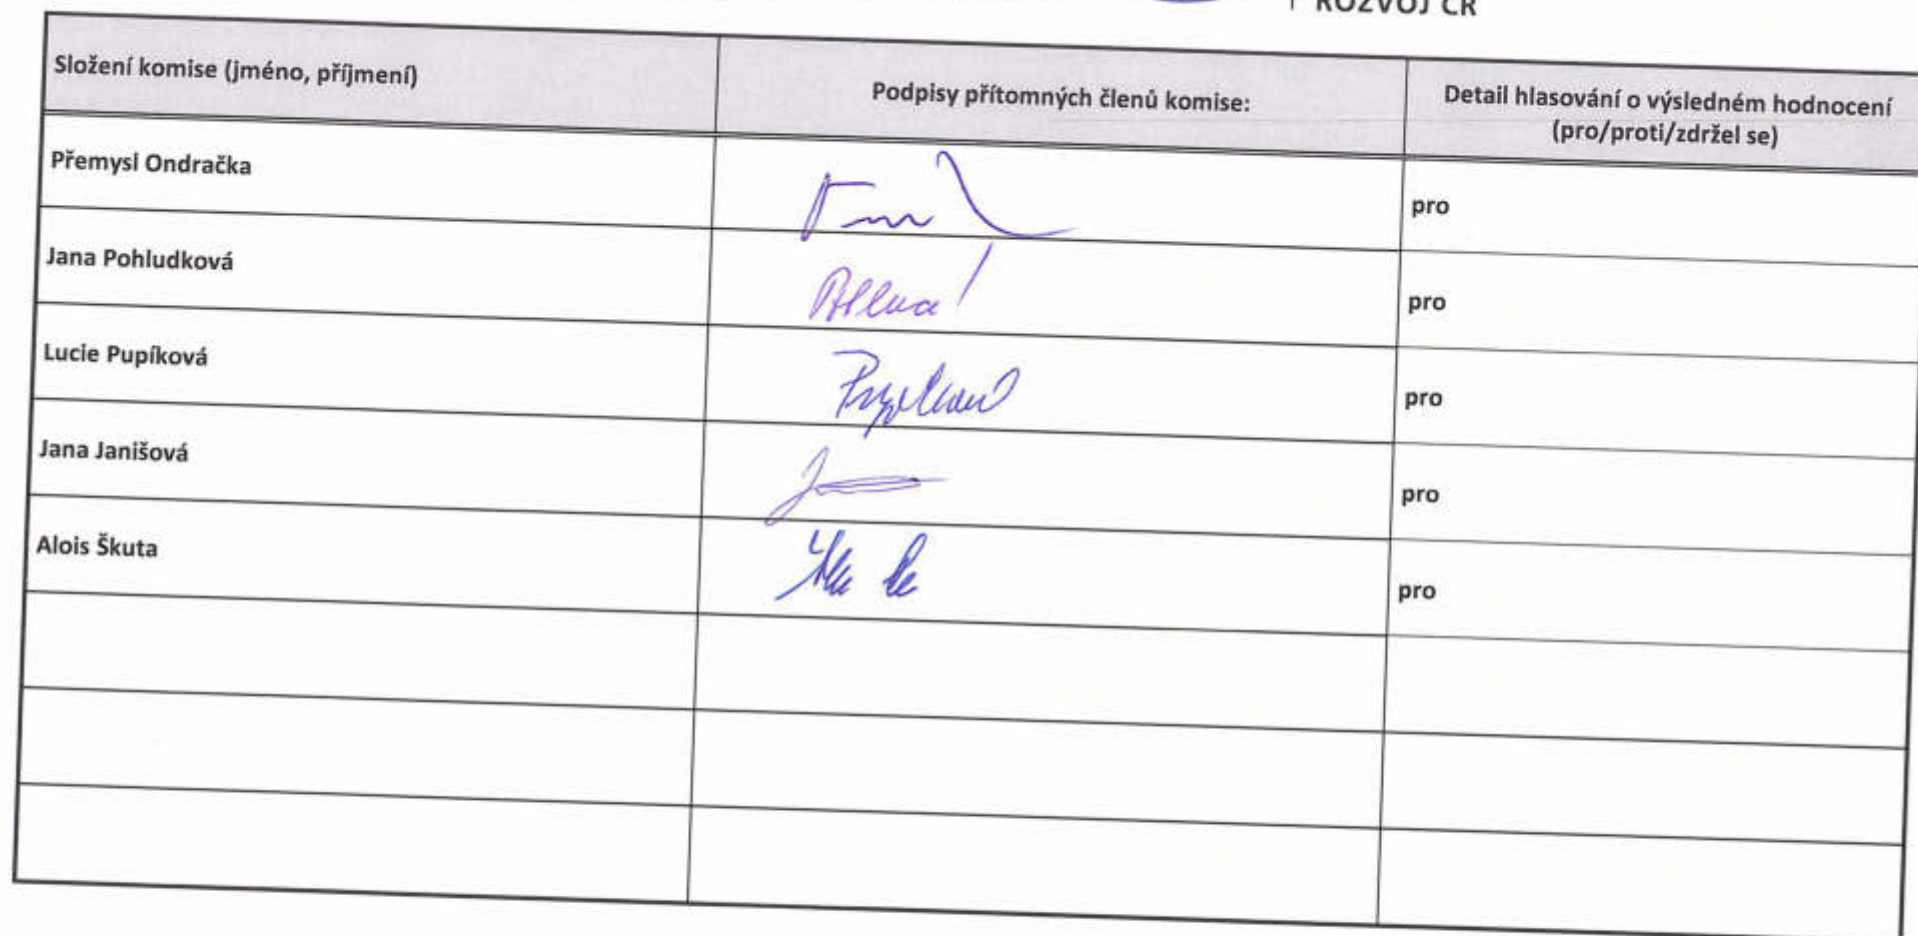 ROZVOJ ČR
Složení komise (jméno, příjmení)
Podpisy přítomných členů komise:
Detail hlasování o výsledném hodnocení
(pro/proti/zdržel se)
Přemysl Ondračka
pro
Jana Pohludková
pro
Lucie Pupíková
pro
Jana Janišová
pro
Alois Škuta
pro